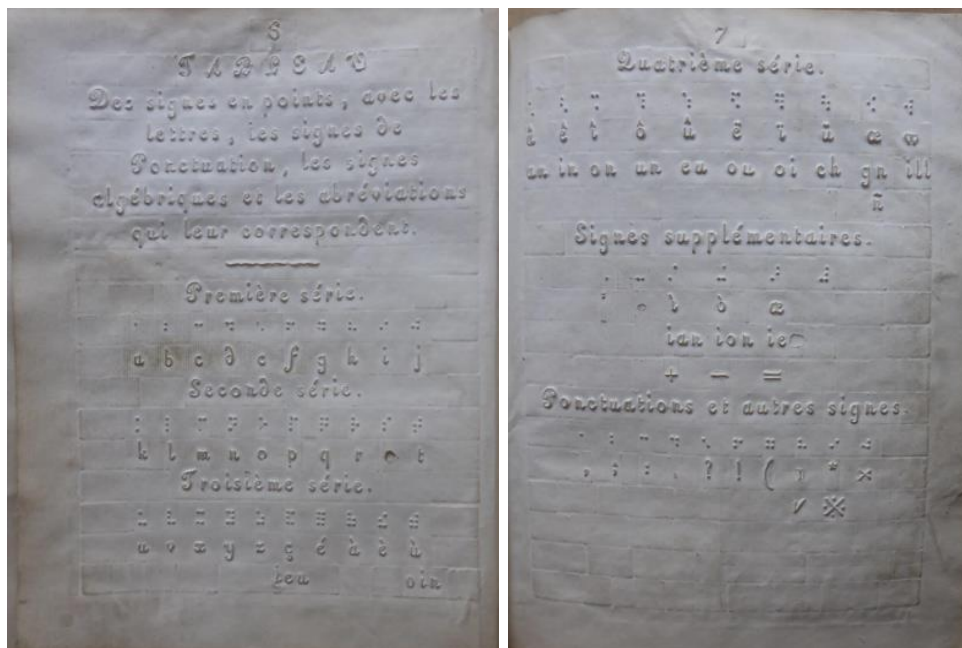 6
TABLEAU
Des signes en points, avec les
lettres, les signes de
Ponctuation, les signes
algébriques et les abréviations
qui leur correspondent.
Première série.
a b c d e f g h i j
Seconde série.
k l m n o p q r t
Troisième série.
u v x y z ç é à è ù
ieu oin
7
Quatrième série.
â ê î ô û ë ï ü œ w
an in on un eu ou oi ch gn ill
ñ
Signes supplémentaires.
ì ò æ
ian ion
+ − =
Ponctuations et autres signes.
, ; : . ? ! ( * ×
※